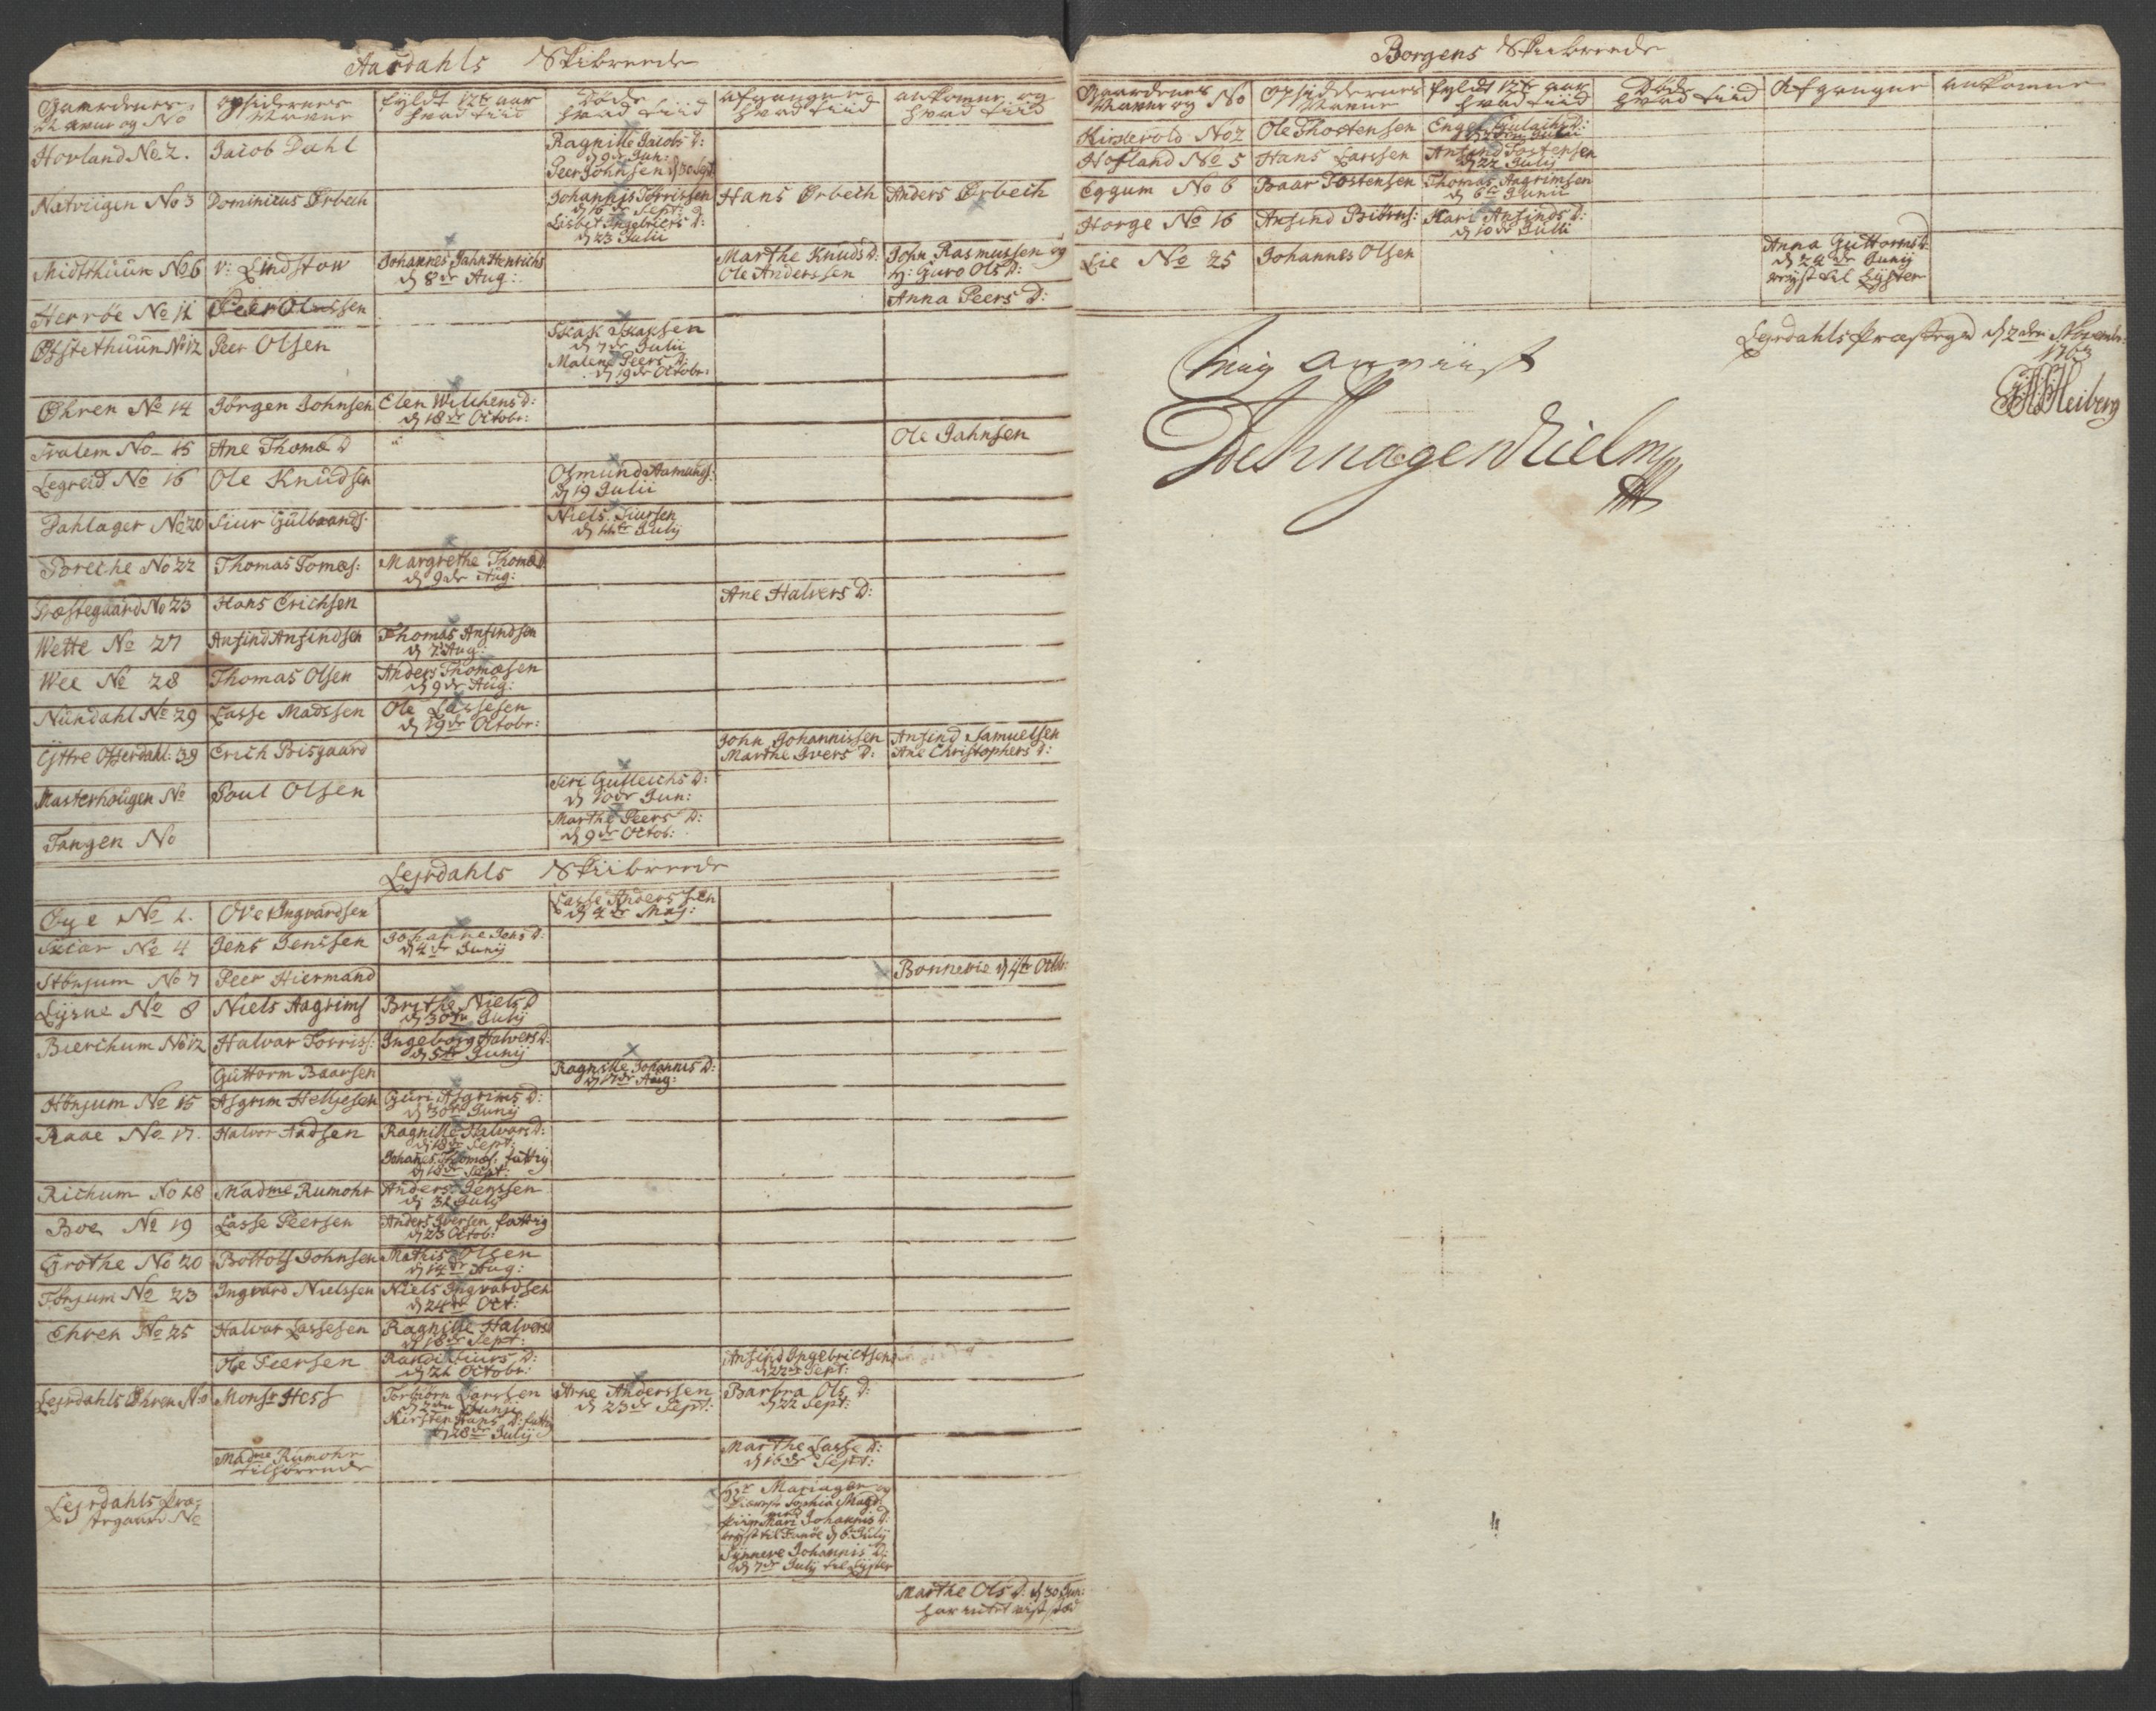 Aardahls Skibreede
Gaardenes Navne og No | Opsidernes Navne | fyldt 12te aar hvad tiid | Døde hvad tiid | afgangne hvad tiid | ankomne og hvad tiid
Hovland No 2. | Jacob Dahl | | Ragnille Jacobs D:
d 9de Jun:
Peer Johnsen d 30 Sept
Natviigen No 3 | Dominicus Ørbech | | Johannis Torrissen | Hans Ørbech | Anders Ørbech
d 16de Sept:
Lisbet Ingebricts D:
d 23 Julii
Midtthuun No 6 | v: Lindstow | Johannes Jahn Henrichs | | Marthe Knuds D: | John Rasmussen og
d 8de Aug: | Ole Anderssen | H: Guro Ols D:
Herrøe No 11 | Peer Olssen | | | | Anna Peers D:
Øfstethuun No 12 | Peer Olsen | | Skak Skaksen
d 7de Julii
Malene Peers D:
d 19de Octobr:
Øhren No 14 | Jørgen Johnsen | Elen Wilchens D:
d 18de Octobr:
Tralem No 15 | Ane Thomæ D | | | | Ole Jahnsen
Legreid No 16 | Ole Knudsen | | Osmund Aamunds:
d 19 Julii
Dahlager No 20 | Siur Gulbrands: | | Niels Siursen
d 11te Julij
Soreche No 22 | Thomas Tomæs: | Margrethe Thomæ D
d 9de Aug:
Præstegaard No 23 | Hans Erichsen | | | Ane Halvers D:
Wette No 27 | Anfind Anfindsen | Thomas Anfindsen
d 7 Aug:
Wee No 28 | Thomas Olsen | Anders Thomæsen
d 9de Aug:
Nundahl No 29 | Lasse Madssen | Ole Lassesen
d 19de Octobr:
Yttre Offerdahl: 39 | Erich Bisgaard | | | John Johannissen | Anfind Samuelsen
Marthe Ivers D: | Ane Christophers D:
Masterhougen No | Poul Olsen | | Siri Gulleichs D:
d 10de Jun:
Tangen No | | | Marthe Peers D:
d 9de Octob:
Lejrdahls Skiibreede
Øye No 1. | Ole Ingvardsen | | Lasse Anderssen
d 4de Maj:
Skiar No 4 | Jens Jenssen | Johanne Jens D:
d 4de Junij
Stønjum No 7 | Peer Hiermand | | | | Bonnevie d 1ste Octb:
Lysne No 8 | Niels Aagrims | Brithe Niels D
d 30te Julij
Bierchum No 12 | Halvar Torriss: | Ingeborg Halvers D:
d 5te Junij
Guttorm Baarsen | | Ragnille Johannis D:
d 17de Aug:
Hønjum No 15 | Asgrim Helljesen | Guri Asgrims D:
d 30te Junij
Raae No 17. | Halvor Aadsen | Ragnille Halvors D:
d 18de Sept:
Johanes Thomæs: fattig
d 18de Sept:
Richum No 18 | Madme Rumohr | Anders Jenssen
d 31 Julij
Boe No 19 | Lasse Peersen | Anders Iversen fattig
d 23 Octob:
Grothe No 20 | Bottolf Johnsen | Mathis Olsen
d 14de Aug:
Tønjum No 23 | Ingvard Nielssen | Niels Ingvardsen
d 24de Oct:
Ehren No 25 | Halvor Lassesen | Ragnille Halvers
d 18de Sept:
Ole Peersen | Randi Siurs D: | | Anfind Ingebrictsen
d 21 Octobr: | d 22de Sept:
Lejrdahls Øhren No | Monsr Hess | Torbiørn Larssen | Arne Anderssen | Barbra Ols D:
d 2den Junij | d 23de Sept: | d 22 Sept:
Kirsten Hans D: fattig
d 28de Julij
Madme Rumohr | | | Marthe Lasse D:
tilhørende | d 16de Sept:
Lejrdahls Præ-
stegaard No | | | | Hr Mariager og
Sophia Magd:
Mari Johannis D:
reyst til Fanøe d 6 Julij
Synneve Johannis D:
d 7de Julij til Lyster
Marthe Ols D: d 30 Jun:
har intet vist stæd
Borgens Skiibreede
Gaardenes Navne og No | Opsiddernes Navne | fyldt 12te aar hvad tiid | Døde hvad tiid | Afgangne | ankomne
Kirkevold No 2 | Ole Thostensen | Engel Gulachs D:
Hofland No 5 | Hans Larssen | Anfind Tostensen
d 22 Julij
Eggum No 6 | Baar Tostensen | Thomas Aagrimsen
d 6te Junii
Horge No 16 | Anfind Bitrus: | Mari Anfinds D:
d 10de Julii
Lie No 25 | Johannes Olsen | | | Anna Guttorms D:
d 24de Junij
reyst til Lyster
Lejrdahls Præstegrd d 2den Novembr:
1763
GF Heiberg
anviist
De Knagenhielm